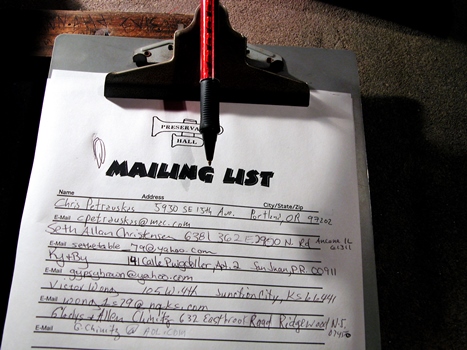 PRESERVATION
HALL
MAILING LIST
Name Address City/State/Zip
Chris Petrauskas 5930 SE 15th Ave. Portland, OR 97202
E-Mail cpetrauskas@mzc.com
Seth Allan Christensen 6381 362E 2900 N. Rd
61311
E-Mail @yahoo.com
Ky & Bry 141 Calle Apt. 2 San Juan, P.R. 00911
E-Mail gypsybrown@yahoo.com
Victor Wong 105 W. 4th Junction City, KS 66441
E-Mail
Gladys & Allan Chinitz 632 East Road Ridgewood N.J.
E-Mail G.Chinitz@AOL.com